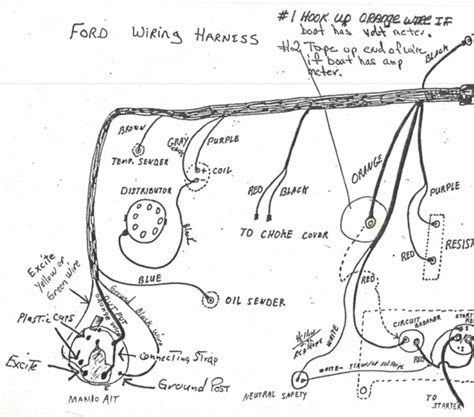 FORD WIRING HARNESS
#1 HOOK UP ORANGE WIRE IF
boat has volt meter.
#2 Tape up end of wire
if boat has amp
meter.
BLACK
BROWN
TEMP. SENDER
GRAY
PURPLE
COIL
DISTRIBUTOR
Black
RED
BLACK
TO CHOKE COVER
ORANGE
PURPLE
RED
RESIS
BLUE
OIL SENDER
Excite
Yellow or
Green wire
Plastic Caps
OUTPUT
ORANGE
Ground
Black wire
Connecting Strap
Excite
Ground Post
MANDO ALT
RED
WHITE
Yellow
RED
CIRCUIT
BREAKER
START
WHITE
NEUTRAL SAFETY
TO
STARTER